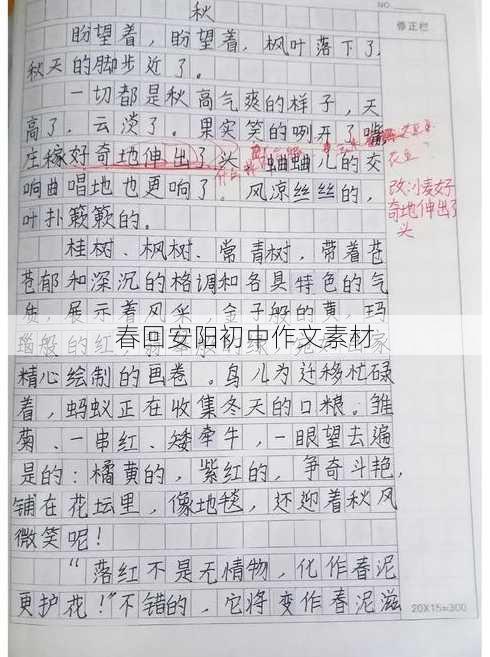 秋
NO.
修正栏
盼望着，盼望着，枫叶落下了，
秋天的脚步近了。
一切都是秋高气爽的样子，天
高了，云淡了。果实笑的咧开了嘴
庄稼好奇地伸出了头
蛐蛐儿的交
响曲唱地也更响了。风凉丝丝的，
叶扑簌簌的。
改：小麦好
奇地伸出了
头
桂树、枫树、常青树，带着苍
苍郁和深沉的格调和各具特色的气
质，展示着风采，金子般的黄，玛
瑙般的红，
春回安阳初中作文素材
精心绘制的画卷。鸟儿为迁移忙碌
着，蚂蚁正在收集冬天的口粮。雏
菊、一串红、矮牵牛，一眼望去遍
是的：橘黄的，紫红的，争奇斗艳，
铺在花坛里，像地毯，还迎着秋风
微笑呢！
“落红不是无情物，化作春泥
更护花！”不错的，它将变作春泥滋
20X15=300